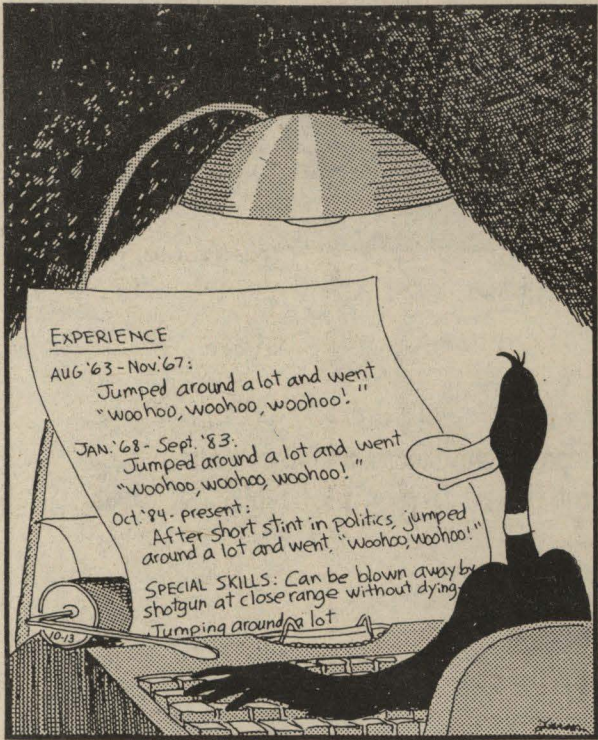 EXPERIENCE
AUG '63 - Nov. '67:
Jumped around a lot and went
"woohoo, woohoo, woohoo!"
JAN. '68 - Sept. '83:
Jumped around a lot and went
"woohoo, woohoo, woohoo!"
Oct. '84 - present:
After short stint in politics, jumped
around a lot and went, "woohoo, woohoo!"
SPECIAL SKILLS: Can be blown away by
shotgun at close range without dying.
Jumping around a lot
10-13
Larson